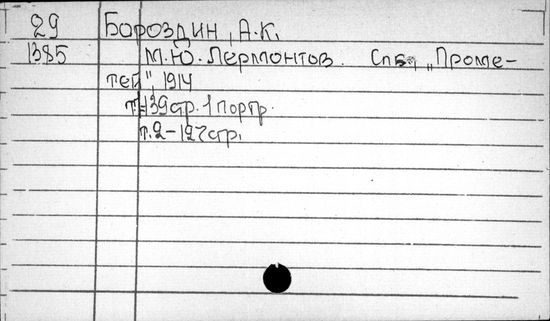 29 Бороздин, А.К.
1385 М.Ю. Лермонтов. Спб, „Проме-
тей", 1914
т.1-139стр. 1 портр.
т.2-127стр.